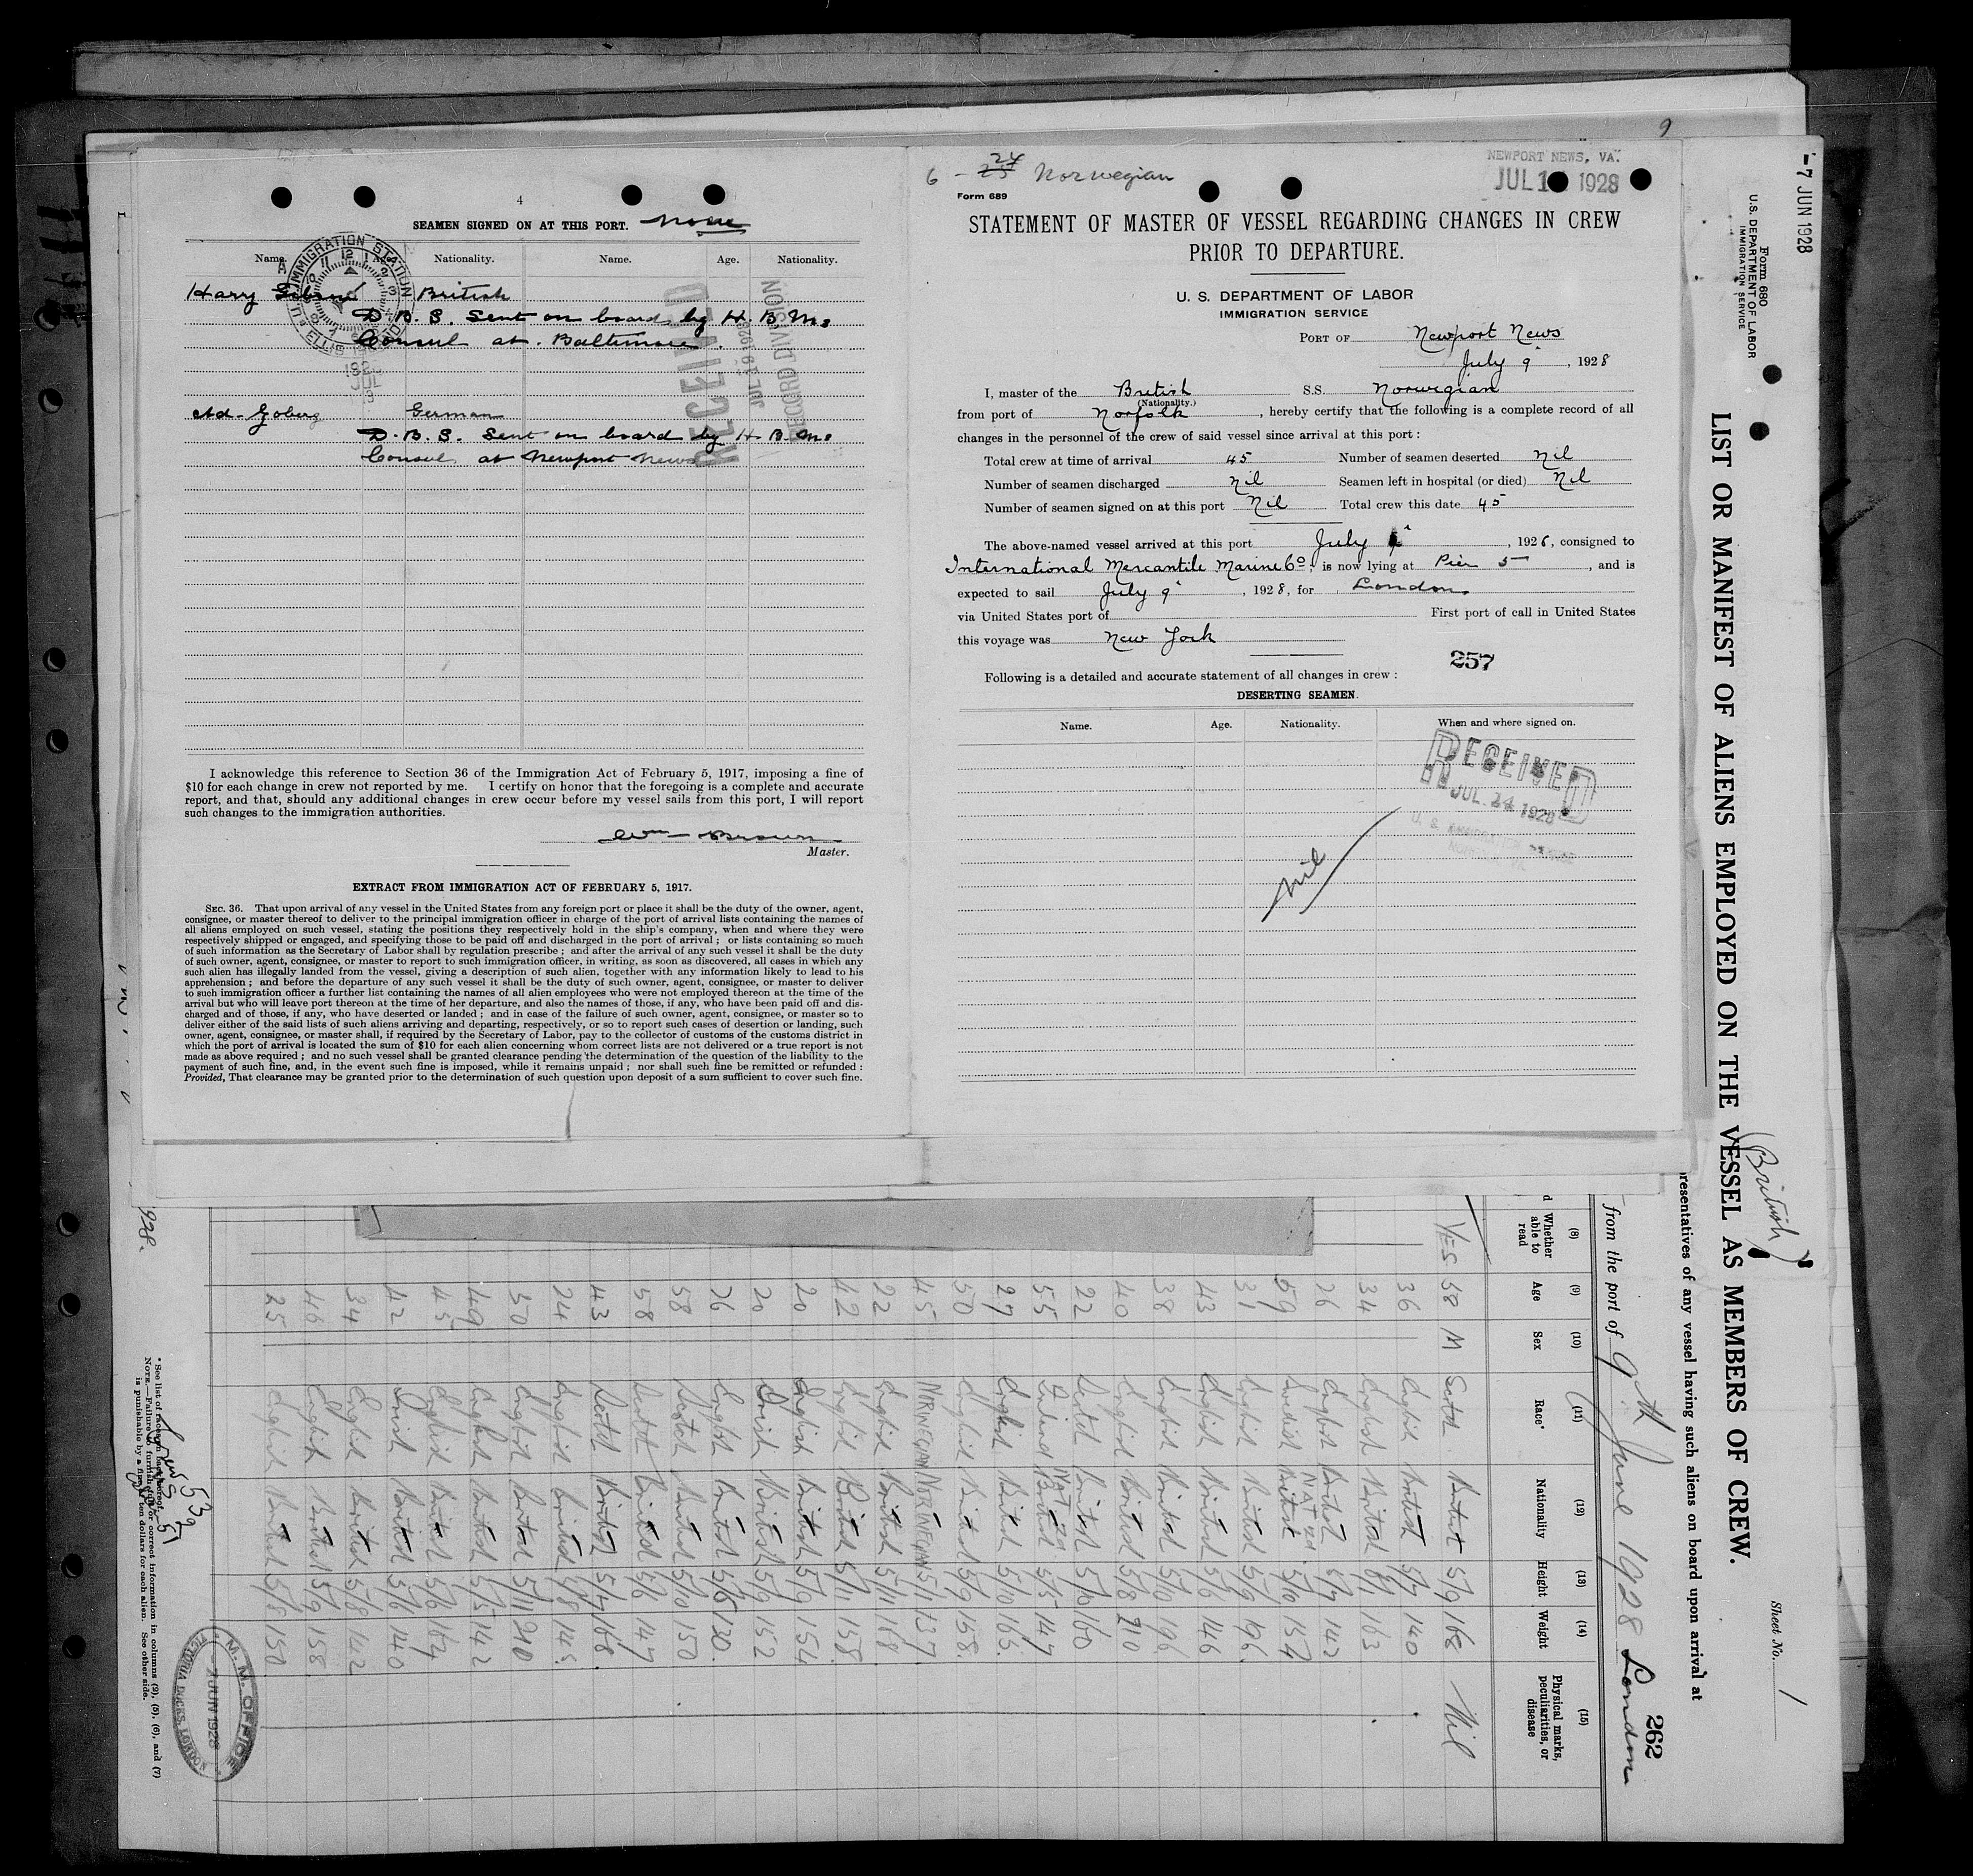 4
SEAMEN SIGNED ON AT THIS PORT. none
Name. Age. Nationality. Name. Age. Nationality.
Harry British
D.B.S. Sent on board by H.B.Ms
Consul at Baltimore.
Ad. Goberg German
D.B.S. Sent on board by H.B.Ms
Consul at Newport News
U.S. IMMIGRATION STATION
RECEIVED
JUL 19 1928
RECORD DIVISION
I acknowledge this reference to Section 36 of the Immigration Act of February 5, 1917, imposing a fine of
$10 for each change in crew not reported by me. I certify on honor that the foregoing is a complete and accurate
report, and that, should any additional changes in crew occur before my vessel sails from this port, I will report
such changes to the immigration authorities.
Wm Brown
Master.
EXTRACT FROM IMMIGRATION ACT OF FEBRUARY 5, 1917.
SEC. 36. That upon arrival of any vessel in the United States from any foreign port or place it shall be the duty of the owner, agent,
consignee, or master thereof to deliver to the principal immigration officer in charge of the port of arrival lists containing the names of
all aliens employed on such vessel, stating the positions they respectively hold in the ship's company, when and where they were
respectively shipped or engaged, and specifying those to be paid off and discharged in the port of arrival; or lists containing so much
of such information as the Secretary of Labor shall by regulation prescribe; and after the arrival of any such vessel it shall be the duty
of such owner, agent, consignee, or master to report to such immigration officer, in writing, as soon as discovered, all cases in which any
such alien has illegally landed from the vessel, giving a description of such alien, together with any information likely to lead to his
apprehension; and before the departure of any such vessel it shall be the duty of such owner, agent, consignee, or master to deliver
to such immigration officer a further list containing the names of all alien employees who were not employed thereon at the time of the
arrival but who will leave port thereon at the time of her departure, and also the names of those, if any, who have been paid off and dis-
charged and of those, if any, who have deserted or landed; and in case of the failure of such owner, agent, consignee, or master so to
deliver either of the said lists of such aliens arriving and departing, respectively, or so to report such cases of desertion or landing, such
owner, agent, consignee, or master shall, if required by the Secretary of Labor, pay to the collector of customs of the customs district in
which the port of arrival is located the sum of $10 for each alien concerning whom correct lists are not delivered or a true report is not
made as above required; and no such vessel shall be granted clearance pending the determination of the question of the liability to the
payment of such fine, and, in the event such fine is imposed, while it remains unpaid; nor shall such fine be remitted or refunded:
Provided, That clearance may be granted prior to the determination of such question upon deposit of a sum sufficient to cover such fine.
9
6 - 25 24 Norwegian
NEWPORT NEWS, VA.
JUL 1 1928
Form 689
STATEMENT OF MASTER OF VESSEL REGARDING CHANGES IN CREW
PRIOR TO DEPARTURE.
U. S. DEPARTMENT OF LABOR
IMMIGRATION SERVICE
PORT OF Newport News
July 9, 1928
I, master of the British S.S. Norwegian
(Nationality.)
from port of Norfolk, hereby certify that the following is a complete record of all
changes in the personnel of the crew of said vessel since arrival at this port:
Total crew at time of arrival 45 Number of seamen deserted nil
Number of seamen discharged nil Seamen left in hospital (or died) Nil
Number of seamen signed on at this port Nil Total crew this date 45
The above-named vessel arrived at this port July, 1928, consigned to
International Mercantile Marine Co, is now lying at Pier 5, and is
expected to sail July 9, 1928, for London
via United States port of First port of call in United States
this voyage was New York
257
Following is a detailed and accurate statement of all changes in crew:
DESERTING SEAMEN.
Name. Age. Nationality. When and where signed on.
RECEIVED
JUL 24 1928
nil
-7 JUN 1928
Form 680
U.S. DEPARTMENT OF LABOR
IMMIGRATION SERVICE
LIST OR MANIFEST OF ALIENS EMPLOYED ON THE VESSEL AS MEMBERS OF CREW.
(British)
Sheet No. 1
resentatives of any vessel having such aliens on board upon arrival at
from the port of 9th June 1928 London
262
(8) (9) (10) (11) (12) (13) (14) (15)
Whether able to read Age Sex Race* Nationality Height Weight Physical marks, peculiarities, or disease
YES 58 M Scotch British 5/9 168 Nil
36 English British 5/7 140
34 English British 6/1 163
26 English British 5/7 142
59 5/10 154
31 English British 5/9 196
43 English British 5/6 146
38 English British 5/10 196
40 English British 5/8 210
22 Scotch British 5/10 160
55 5/5 147
27 English British 5/10 165
50 English British 5/9 158
45 NORWEGIAN NORWEGIAN 5/11 137
22 English British 5/11 168
42 English British 5/11 158
20 English British 5/9 154
20 British 5/9 152
26 English British 5/6 130
58 Scotch British 5/10 150
58 Scotch British 5/6 147
43 Scotch British 5/7 168
24 English British 5/8 145
50 English British 5/11 210
49 English British 5/5 142
45 English British 5/6 164
42 British 5/6 140
34 English British 5/8 142
46 English British 5/9 158
25 English British 5/8 150
928.
* See list of races on back hereof.
NOTE.—Failure to furnish full or correct information in columns (2), (5), (6), and (7)
is punishable by a fine of ten dollars for each alien. See other side.
M. M. OFFICE
7 JUN 1928
VICTORIA DOCKS, LONDON